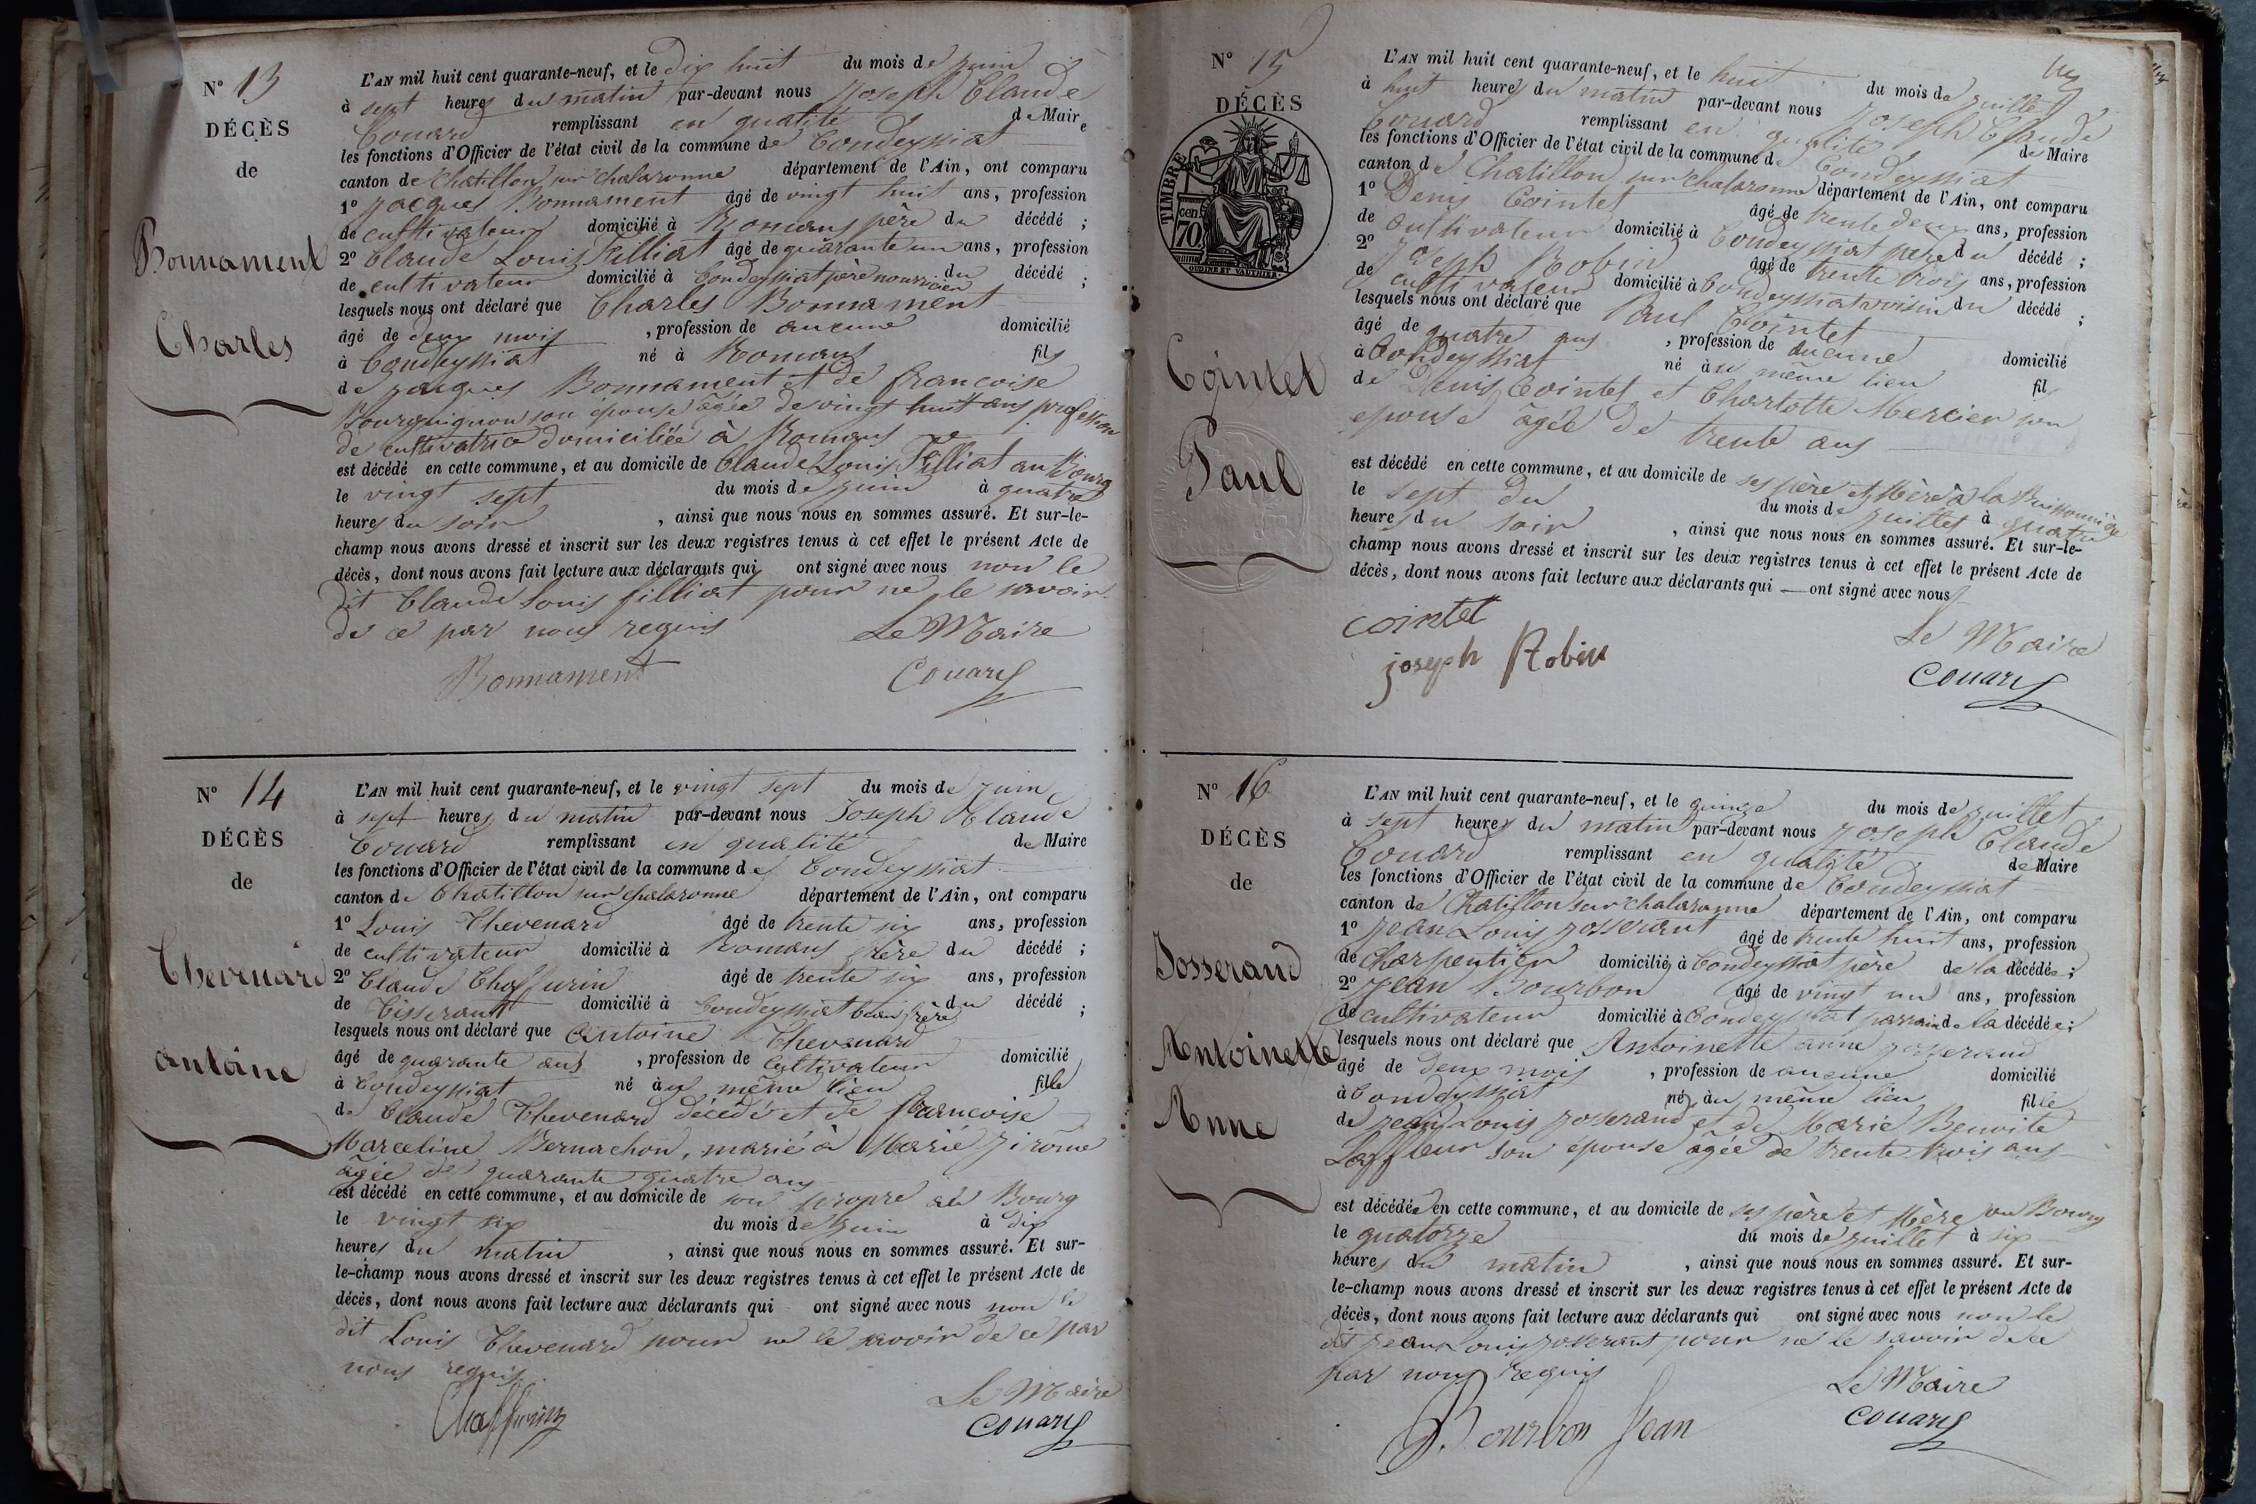 Nº 13
DÉCÈS
de
Bonnament
Charles
L'AN mil huit cent quarante-neuf, et le dix huit du mois de juin
à sept heures du matin par-devant nous Joseph Claude
Couard remplissant en qualité de Maire
les fonctions d'Officier de l'état civil de la commune de Condeyssiat
canton de Chatillon sur chalaronne département de l'Ain, ont comparu
1º Jacques Bonnament âgé de vingt huit ans, profession
de cultivateur domicilié à Romans père du décédé ;
2º Claude Louis Filliat âgé de quarante un ans, profession
de cultivateur domicilié à Condeyssiat père nourricier du décédé ;
lesquels nous ont déclaré que Charles Bonnament
âgé de deux mois , profession de aucune domicilié
à Condeyssiat né à Romans fils
de jacques Bonnament et de françoise
Bourguignon son épouse âgée de vingt huit ans profession
de cultivatrice domiciliée à Romans
est décédé en cette commune, et au domicile de Claude Louis Filliat au Bourg
le vingt sept du mois de juin à quatre
heures du soir , ainsi que nous nous en sommes assuré. Et sur-le-
champ nous avons dressé et inscrit sur les deux registres tenus à cet effet le présent Acte de
décès, dont nous avons fait lecture aux déclarants qui ont signé avec nous non le
dit Claude Louis filliat pour ne le savoir
de ce par nous requis Le Maire
Bonnament Couard
Nº 14
DÉCÈS
de
Chevenard
antoine
L'AN mil huit cent quarante-neuf, et le vingt sept du mois de juin
à sept heures du matin par-devant nous Joseph Claude
Couard remplissant en qualité de Maire
les fonctions d'Officier de l'état civil de la commune de Condeyssiat
canton de Chatillon sur chalaronne département de l'Ain, ont comparu
1º Louis Chevenard âgé de trente six ans, profession
de cultivateur domicilié à Romans frère du décédé ;
2º Claude Chaffurin âgé de trente six ans, profession
de Tisserant domicilié à Condeyssiat beau frère du décédé ;
lesquels nous ont déclaré que Antoine Chevenard
âgé de quarante ans , profession de Cultivateur domicilié
à Condeyssiat né au même lieu fille
de Claude Chevenard décédé et de françoise
Marceline Bernachon, marié à Marie Jirôme
âgée de quarante quatre ans
est décédé en cette commune, et au domicile de son propre au Bourg
le vingt six du mois de juin à dix
heures du matin , ainsi que nous nous en sommes assuré. Et sur-
le-champ nous avons dressé et inscrit sur les deux registres tenus à cet effet le présent Acte de
décès, dont nous avons fait lecture aux déclarants qui ont signé avec nous non le
dit Louis Chevenard pour ne le savoir de ce par
nous requis
Le Maire
Chaffurin Couard
Nº 15
DÉCÈS
TIMBRE
cen.
70
Cointet
Paul
L'AN mil huit cent quarante-neuf, et le huit du mois de juillet
à huit heures du matin par-devant nous Joseph Claude
Couard remplissant en qualité de Maire
les fonctions d'Officier de l'état civil de la commune de Condeyssiat
canton de Chatillon sur chalaronne département de l'Ain, ont comparu
1º Denis Cointet âgé de trente deux ans, profession
de cultivateur domicilié à Condeyssiat père du décédé ;
2º Joseph Robin âgé de trente trois ans, profession
de cultivateur domicilié à Condeyssiat voisin du décédé ;
lesquels nous ont déclaré que Paul Cointet
âgé de quatre ans , profession de aucune domicilié
à Condeyssiat né au même lieu fil
de Denis Cointet et Charlotte Mercier son
epouse âgée de trente ans
est décédé en cette commune, et au domicile de ses père et Mère à la Buissonnière
le sept du du mois de juillet à quatre
heures du soir , ainsi que nous nous en sommes assuré. Et sur-le-
champ nous avons dressé et inscrit sur les deux registres tenus à cet effet le présent Acte de
décès, dont nous avons fait lecture aux déclarants qui — ont signé avec nous
cointet Le Maire
joseph Robin Couard
Nº 16
DÉCÈS
de
Josserand
Antoinette
Anne
L'AN mil huit cent quarante-neuf, et le quinze du mois de juillet
à sept heures du matin par-devant nous Joseph Claude
Couard remplissant en qualité de Maire
les fonctions d'Officier de l'état civil de la commune de Condeyssiat
canton de Chatillon sur chalaronne département de l'Ain, ont comparu
1º Jean Louis josserant âgé de trente huit ans, profession
de Charpentier domicilié à Condeyssiat père de la décédée ;
2º Jean Bourbon âgé de vingt un ans, profession
de cultivateur domicilié à Condeyssiat parrain de la décédée ;
lesquels nous ont déclaré que Antoinette anne josserand
âgé de deux mois , profession de aucune domicilié
à Condeyssiat né au même lieu fille
de jean Louis josserand et de Marie Benoite
Laffleur son épouse âgée de trente trois ans
est décédée en cette commune, et au domicile de ses père et Mère au Bourg
le quatorze du mois de juillet à six
heures du matin , ainsi que nous nous en sommes assuré. Et sur-
le-champ nous avons dressé et inscrit sur les deux registres tenus à cet effet le présent Acte de
décès, dont nous avons fait lecture aux déclarants qui ont signé avec nous non le
dit jean Louis josserant pour ne le savoir de ce
par nous requis Le Maire
Bourbon Jean Couard